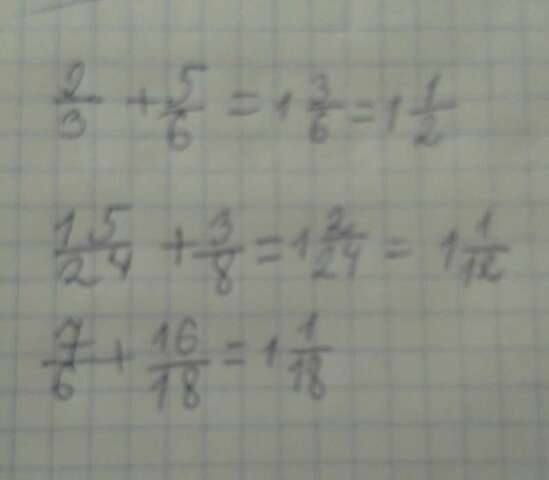 2/3 + 5/6 = 1 3/6 = 1 1/2
15/24 + 3/8 = 1 2/24 = 1 1/12
7/6 + 16/18 = 1 1/18